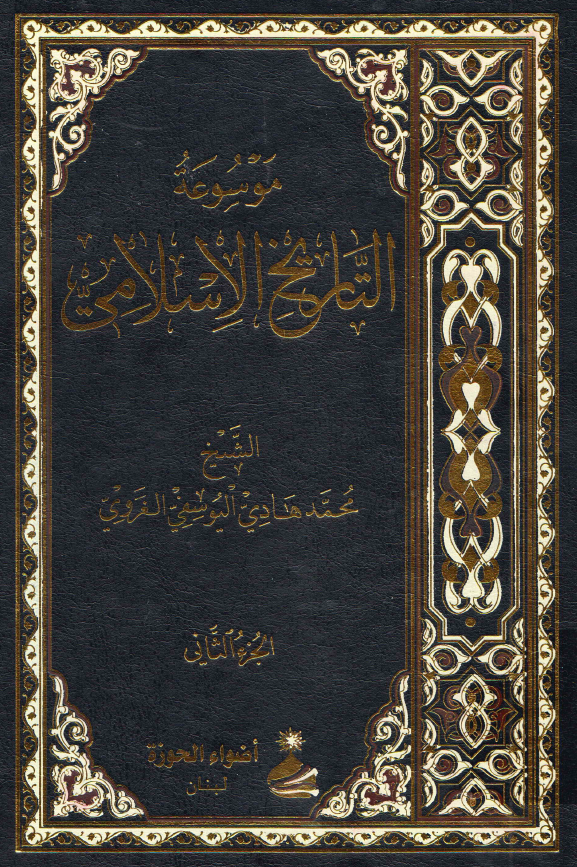 مَوْسُوعَةُ
التَّارِيخِ الإِسْلَامِيِّ
الشَّيْخ
مُحَمَّد هَادِي الْيُوسُفِيّ الغَرَوِيّ
الجُزءُ الثَّانِي
أضواء الحوزة
لبنان